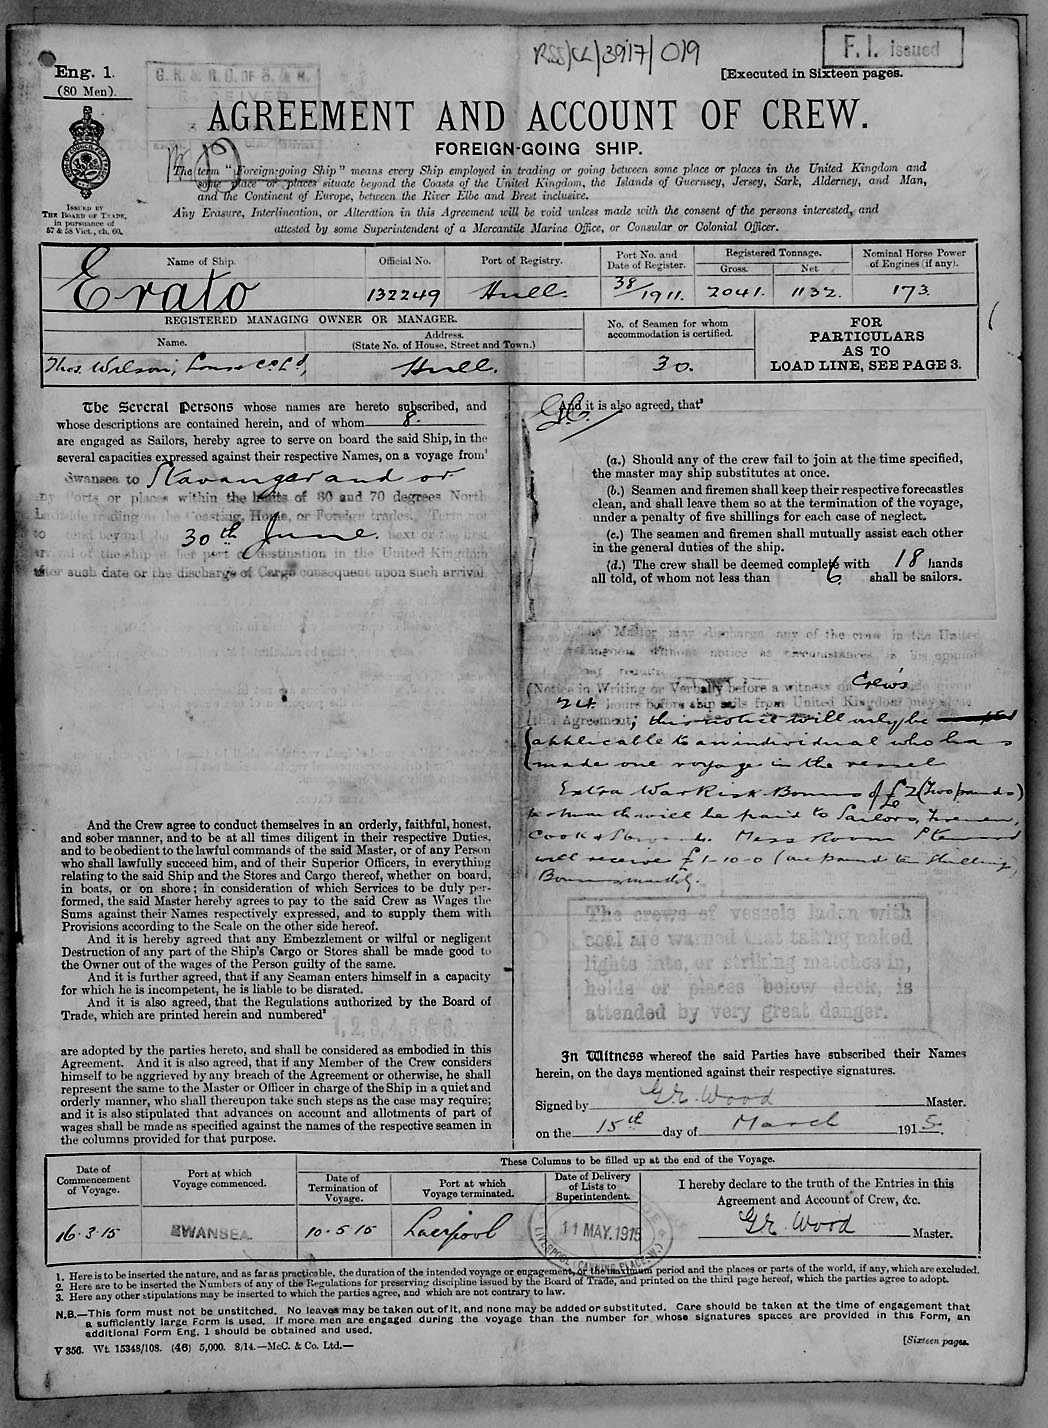 RSS/CL/3917/019
F. I. issued
Eng. 1.
(80 Men).
[Executed in Sixteen pages.
AGREEMENT AND ACCOUNT OF CREW.
FOREIGN-GOING SHIP.
The term "Foreign-going Ship" means every Ship employed in trading or going between some place or places in the United Kingdom and
some place or places situate beyond the Coasts of the United Kingdom, the Islands of Guernsey, Jersey, Sark, Alderney, and Man,
and the Continent of Europe, between the River Elbe and Brest inclusive.
Any Erasure, Interlineation, or Alteration in this Agreement will be void unless made with the consent of the persons interested, and
attested by some Superintendent of a Mercantile Marine Office, or Consular or Colonial Officer.
ISSUED BY
THE BOARD OF TRADE,
in pursuance of
57 & 58 Vict., ch. 60.
Name of Ship. Official No. Port of Registry. Port No. and Date of Register. Registered Tonnage. Gross. Net Nominal Horse Power of Engines (if any).
Erato 132249 Hull. 38/1911. 2041. 1132. 173.
REGISTERED MANAGING OWNER OR MANAGER.
Name. Address. (State No. of House, Street and Town.)
No. of Seamen for whom accommodation is certified.
Thos. Wilson, Sons & Co Ld, Hull. 30.
FOR
PARTICULARS
AS TO
LOAD LINE, SEE PAGE 3.
The Several Persons whose names are hereto subscribed, and
whose descriptions are contained herein, and of whom 8.
are engaged as Sailors, hereby agree to serve on board the said Ship, in the
several capacities expressed against their respective Names, on a voyage from¹
Swansea to Stavanger and or
any Ports or places within the limits of 80 and 70 degrees North
Latitude trading in the Coasting, Home, or Foreign trades.
30th June.
arrival of the ship at her port of destination in the United Kingdom
after such date or the discharge of Cargo consequent upon such arrival
And the Crew agree to conduct themselves in an orderly, faithful, honest,
and sober manner, and to be at all times diligent in their respective Duties,
and to be obedient to the lawful commands of the said Master, or of any Person
who shall lawfully succeed him, and of their Superior Officers, in everything
relating to the said Ship and the Stores and Cargo thereof, whether on board,
in boats, or on shore; in consideration of which Services to be duly per-
formed, the said Master hereby agrees to pay to the said Crew as Wages the
Sums against their Names respectively expressed, and to supply them with
Provisions according to the Scale on the other side hereof.
And it is hereby agreed that any Embezzlement or wilful or negligent
Destruction of any part of the Ship's Cargo or Stores shall be made good to
the Owner out of the wages of the Person guilty of the same.
And it is further agreed, that if any Seaman enters himself in a capacity
for which he is incompetent, he is liable to be disrated.
And it is also agreed, that the Regulations authorized by the Board of
Trade, which are printed herein and numbered²
1, 2, 3, 4, 5 & 6.
are adopted by the parties hereto, and shall be considered as embodied in this
Agreement. And it is also agreed, that if any Member of the Crew considers
himself to be aggrieved by any breach of the Agreement or otherwise, he shall
represent the same to the Master or Officer in charge of the Ship in a quiet and
orderly manner, who shall thereupon take such steps as the case may require;
and it is also stipulated that advances on account and allotments of part of
wages shall be made as specified against the names of the respective seamen in
the columns provided for that purpose.
And it is also agreed, that³
(a.) Should any of the crew fail to join at the time specified,
the master may ship substitutes at once.
(b.) Seamen and firemen shall keep their respective forecastles
clean, and shall leave them so at the termination of the voyage,
under a penalty of five shillings for each case of neglect.
(c.) The seamen and firemen shall mutually assist each other
in the general duties of the ship.
(d.) The crew shall be deemed complete with 18 hands
all told, of whom not less than 6 shall be sailors.
Master may discharge any of the crew in the United
without notice as circumstances in his opinion
may require
(Notice in Writing or Verbally before a witness Crew's
24 hours before ship sails from United Kingdom may
this Agreement; this notice will only be
applicable to an individual who has
made one voyage in the vessel
Extra War Risk Bonus of £2 (Two pounds)
per month will be paid to Sailors, Firemen,
Cook & Steward. Mess Room Steward
will receive £1-10-0 (one pound ten shillings)
Bonus monthly.
The crews of vessels laden with
coal are warned that taking naked
lights into, or striking matches in,
holds or places below deck, is
attended by very great danger.
In Witness whereof the said Parties have subscribed their Names
herein, on the days mentioned against their respective signatures.
Signed by G.R. Wood Master.
on the 15th day of March 1915.
These Columns to be filled up at the end of the Voyage.
Date of Commencement of Voyage. Port at which Voyage commenced. Date of Termination of Voyage. Port at which Voyage terminated. Date of Delivery of Lists to Superintendent.
I hereby declare to the truth of the Entries in this
Agreement and Account of Crew, &c.
16.3.15 SWANSEA. 10.5.15 Liverpool 11 MAY.1915
G.R. Wood Master.
1. Here is to be inserted the nature, and as far as practicable, the duration of the intended voyage or engagement, or the maximum period and the places or parts of the world, if any, which are excluded.
2. Here are to be inserted the Numbers of any of the Regulations for preserving discipline issued by the Board of Trade, and printed on the third page hereof, which the parties agree to adopt.
3. Here any other stipulations may be inserted to which the parties agree, and which are not contrary to law.
N.B.—This form must not be unstitched. No leaves may be taken out of it, and none may be added or substituted. Care should be taken at the time of engagement that
a sufficiently large Form is used. If more men are engaged during the voyage than the number for whose signatures spaces are provided in this Form, an
additional Form Eng. 1 should be obtained and used.
V 356. Wt. 15348/108. (46) 5,000. 8/14.—McC. & Co. Ltd.—
[Sixteen pages.